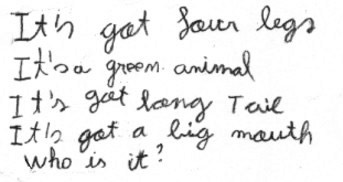 It's got four legs
It's a green animal
It's got long Tail
It's got a big mouth
Who is it?